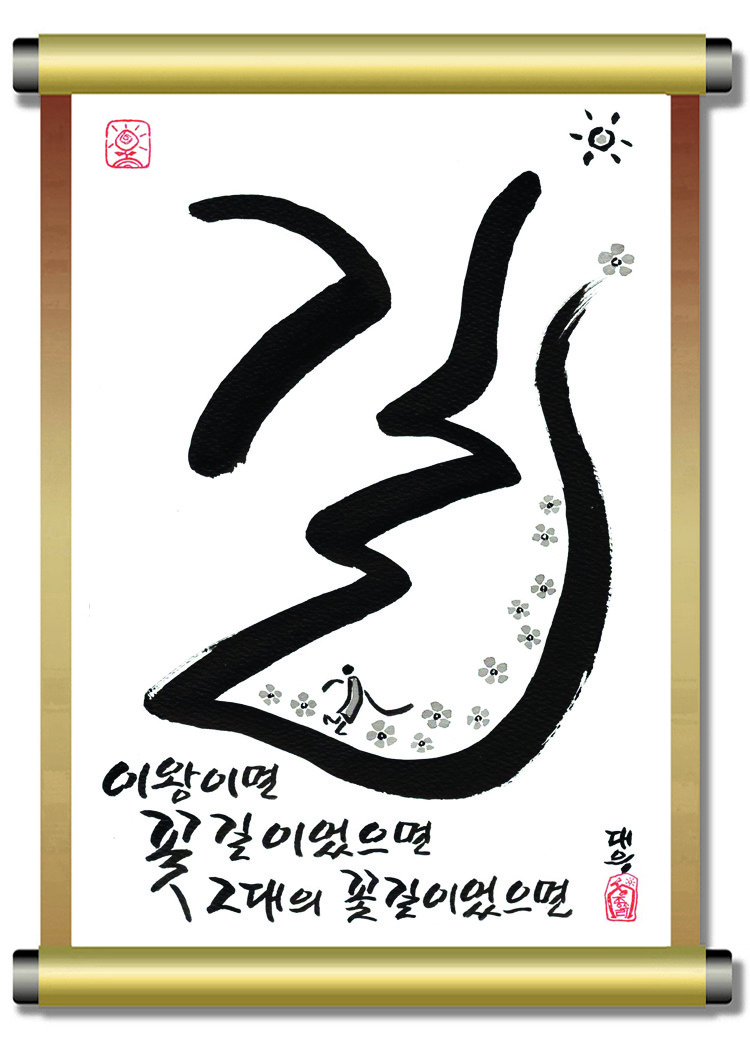 길
이왕이면
꽃길이었으면
그대의 꽃길이었으면
대웅